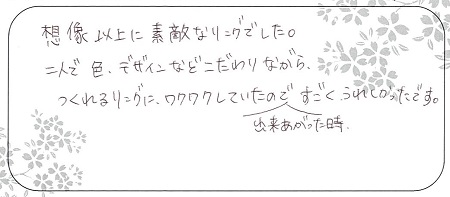 想像以上に素敵なリングでした。
二人で色、デザインなどこだわりながら、
つくれるリングに、ワクワクしていたので すごくうれしかったです。
出来あがった時